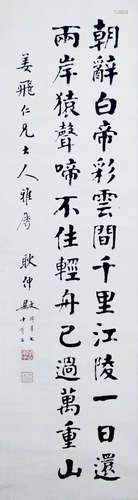 朝辭白帝彩雲間千里江陵一日還
兩岸猿聲啼不住輕舟已過萬重山
姜飛仁兄大人雅屬
耿仲敭